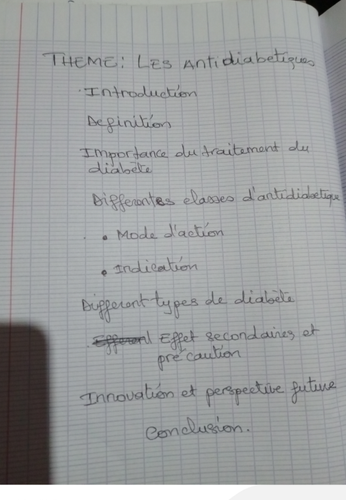 THEME: LES Antidiabetiques
Introduction
Definition
Importance du traitement du
diabète
Differentes classes d'antidiabetique
• Mode d'action
• Indication
Different types de diabète
Effet secondaires et
précaution
Innovation et perspective future
Conclusion.